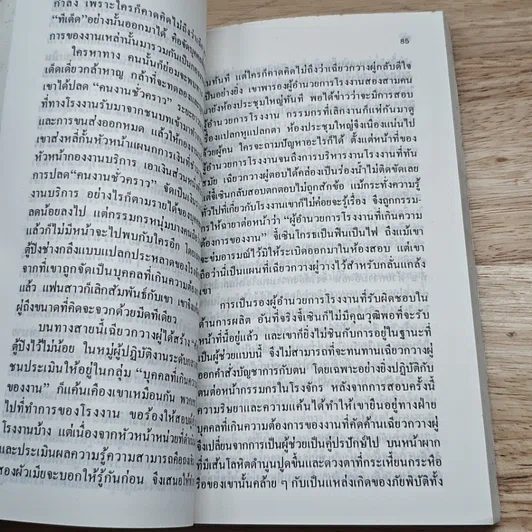 กำลัง เพราะใครก็คาดคิดไม่ถึงว่า
"ทีเด็ด" อย่างนั้นออกมาได้ คือจัด
การของงานเหล่านั้นมารวมกันเป็น
ใครหาทาง คนนั้นก็ย่อมจะพบ
เด็ดเดี่ยวกล้าหาญ กล้าที่จะทดลอง
เขาได้ปลด "คนงานชั่วคราว" ระยะ
ที่ทางโรงงานรับมาจากชนบทเข้ามาทำ
และการขนส่งออกหมด แล้วให้กอง
เขาส่งหลี่กั้นหัวหน้าแผนกการเงินที่
หัวหน้ากองงานบริการ เอาเงินส่วนที่
การปลด"คนงานชั่วคราว" จัดเป็นเงิน
งานบริการ อย่างไรก็ตามรายได้ของ
ลดน้อยลงไป แต่กรรมกรหนุ่มบางคน
ก็เลยไม่มีหน้าจะไปพบกับใครอีก โดย
ตู้ปิงช่างกลึงแบบแปลกประหลาดของ
จากที่เขาถูกจัดเป็นบุคคลที่เกินความ
แล้ว แฟนสาวก็เลิกสัมพันธ์กับเขา เขา
ผู้ถึงขนาดที่คิดจะจวกด้วยมีดทีเดียว
บนทางสายนี้เฉียวกวางผู่ได้สร้าง
ตู้ปิงไว้ไม่น้อย ในหมู่ผู้ปฏิบัติงานระดับ
ชนประเมินให้อยู่ในกลุ่ม "บุคคลที่เกิน
ของงาน" ก็แค้นเคืองเขาเหมือนกัน พวก
ไปที่ทำการของโรงงาน ขอร้องให้สอบ
โรงงานบ้าง แต่เนื่องจากหัวหน้าหน่วยที่
และประเมินผลความรู้ความสามารถคือ
สองผัวเมียจะบอกให้รู้กันก่อน จึงเสนอให้
85
ทันที แต่ใครก็คาดคิดไม่ถึงว่าเฉียวกวางผู่กลับดีใจ
เป็นอย่างยิ่ง เขาพารองผู้อำนวยการโรงงานสองสามคน
ยังห้องประชุมใหญ่ทันที พอได้ข่าวว่าจะมีการสอบ
ผู้อำนวยการโรงงาน กรรมกรที่เลิกงานก็แห่กันมาดู
เรื่องแปลกหูแปลกตา ห้องประชุมใหญ่จึงเนืองแน่นไป
ด้วยผู้คน ใครจะถามปัญหาอะไรก็ได้ ตั้งแต่หน้าที่ของ
ผู้อำนวยการโรงงานจนถึงการบริหารงานโรงงานที่ทัน
สมัย เฉียวกวางผู่ตอบได้คล่องเป็นร่องน้ำไม่ติดขัดเลย
แต่จี้เซินกลับสอบตกตอบไม่ถูกสักข้อ แม้กระทั่งความรู้
ทั่วไปที่เกี่ยวกับโรงงานเขาก็ไม่ค่อยจะรู้เรื่อง จึงถูกกรรม
กรให้ฉายาต่อหน้าว่า "ผู้อำนวยการโรงงานที่เกินความ
ต้องการของงาน" จี้เซินโกรธเป็นฟืนเป็นไฟ ถึงแม้เขา
จะข่มอารมณ์ไว้ไม่ให้ระเบิดออกมาในห้องสอบ แต่เขา
ถือว่านี่เป็นแผนที่เฉียวกวางผู่วางไว้สำหรับกลั่นแกล้ง
เขา
การเป็นรองผู้อำนวยการโรงงานที่รับผิดชอบใน
ด้านการผลิต อันที่จริงจี้เซินก็ไม่มีคุณวุฒิพอที่จะรับ
หน้าที่นี้อยู่แล้ว และเขาก็ยิ่งไม่ชินกับการอยู่ในฐานะที่
เป็นผู้ช่วยแบบนี้ จึงไม่สามารถที่จะทนทานเฉียวกวางผู่
ออกคำสั่งบัญชาการกับตน โดยเฉพาะอย่างยิ่งปฏิบัติกับ
ตนต่อหน้ากรรมกรในโรงจักร หลังจากการสอบครั้งนี้
ความริษยาและความแค้นได้ทำให้เขายืนอยู่ทางฝ่าย
บุคคลที่เกินความต้องการของงานที่คัดค้านเฉียวกวางผู่
จึงเปลี่ยนจากการเป็นผู้ช่วยเป็นคู่ปรปักษ์ไป บนหน้าผาก
ที่มีเส้นโลหิตดำนูนปูดขึ้นและดวงตาที่กระเหี้ยนกระหือ
รือของเขานั้นคล้าย ๆ กับเป็นแหล่งเกิดของภัยพิบัติทั้ง